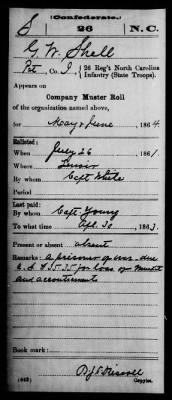 (Confederate.)
S 26 N.C.
G. W. Shell
Pvt, Co. I, 26 Reg't North Carolina
Infantry (State Troops).
Appears on
Company Muster Roll
of the organization named above,
for May & June, 1864.
Enlisted:
When July 26, 1861.
Where Lenoir
By whom Capt White
Period
Last paid:
By whom Capt. Young
To what time Apl. 30, 1863.
Present or absent absent
Remarks: A prisoner of war. due
C. S. $ 55.35 for loss of Musket
and accoutrements
Book mark:
(642) Copyist.